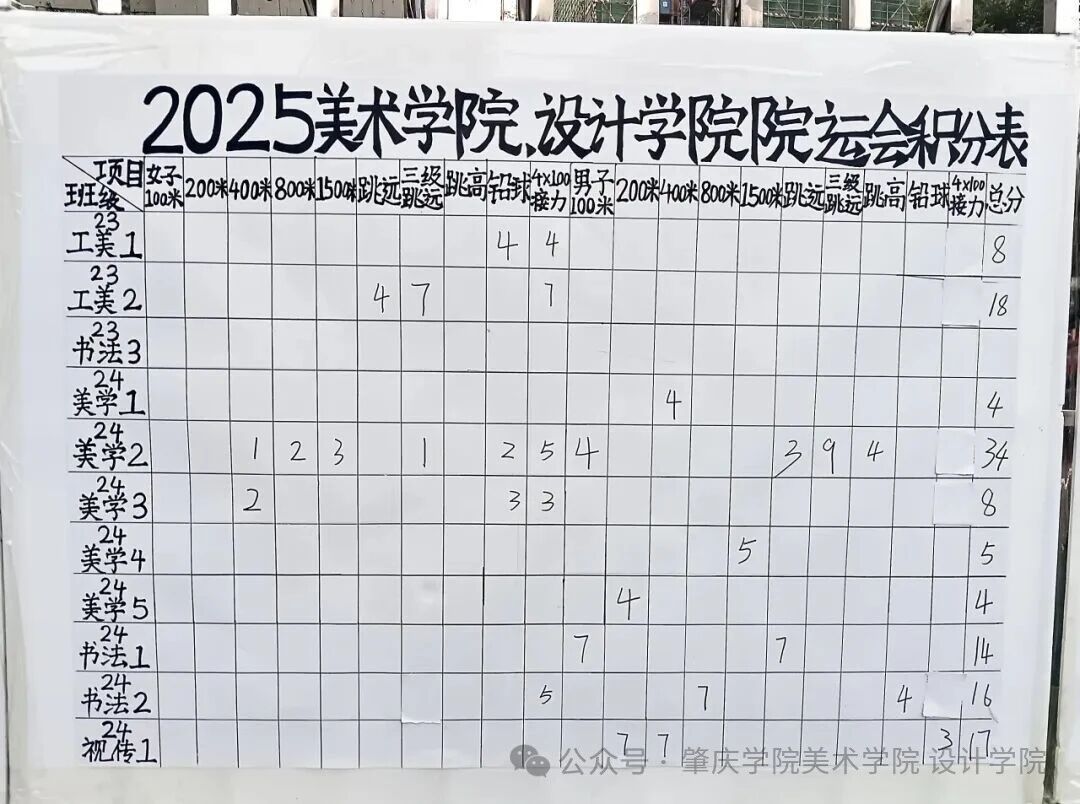 2025美术学院、设计学院院运会积分表
项目 班级 女子100米 200米 400米 800米 1500米 跳远 三级跳远 跳高 铅球 4×100接力 男子100米 200米 400米 800米 1500米 跳远 三级跳远 跳高 铅球 4×100接力 总分
23工美1 4 4 8
23工美2 4 7 7 18
23书法3
24美学1 4 4
24美学2 1 2 3 1 2 5 4 3 9 4 34
24美学3 2 3 3 8
24美学4 5 5
24美学5 4 4
24书法1 7 7 14
24书法2 5 7 4 16
24视传1 7 7 3 17
公众号·肇庆学院美术学院 设计学院